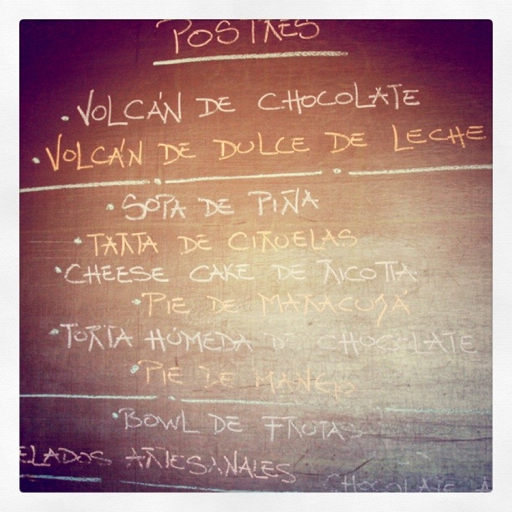 POSTRES
• VOLCÁN DE CHOCOLATE
• VOLCÁN DE DULCE DE LECHE
• SOPA DE PIÑA
• TARTA DE CIRUELAS
• CHEESE CAKE DE RICOTTA
• PIE DE MARACUYÁ
• TORTA HÚMEDA DE CHOCOLATE
• PIE DE MANGO
• BOWL DE FRUTAS
ELADOS ARTESANALES
CHOCOLATE